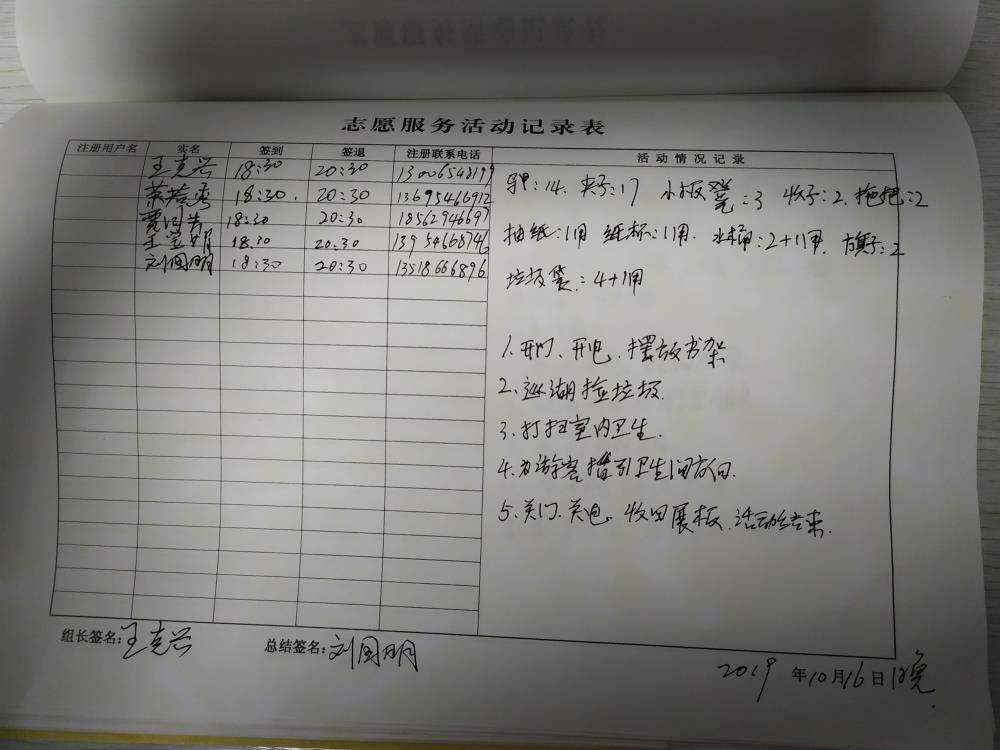 志愿服务活动记录表
注册用户名 实名 签到 签退 注册联系电话 活动情况记录
王克兴 18:30 20:30 13006548199
18:30 20:30 13695466912
18:30 20:30 18562946697
18:30 20:30 13954668746
刘国明 18:30 20:30 13518666896
马甲:14. 夹子:17 小板凳:3 收子:2. 拖把:2
抽纸:1用 纸杯:1用. 水桶:2+1用. 旗子:2
垃圾袋:4+1用
1.开门、开电、摆放书架
2.巡湖捡垃圾.
3.打扫室内卫生.
4.为游客指引卫生间方向.
5.关门.关电.收回展板.活动结束.
组长签名:王克兴 总结签名:刘国明
2019年10月16日晚